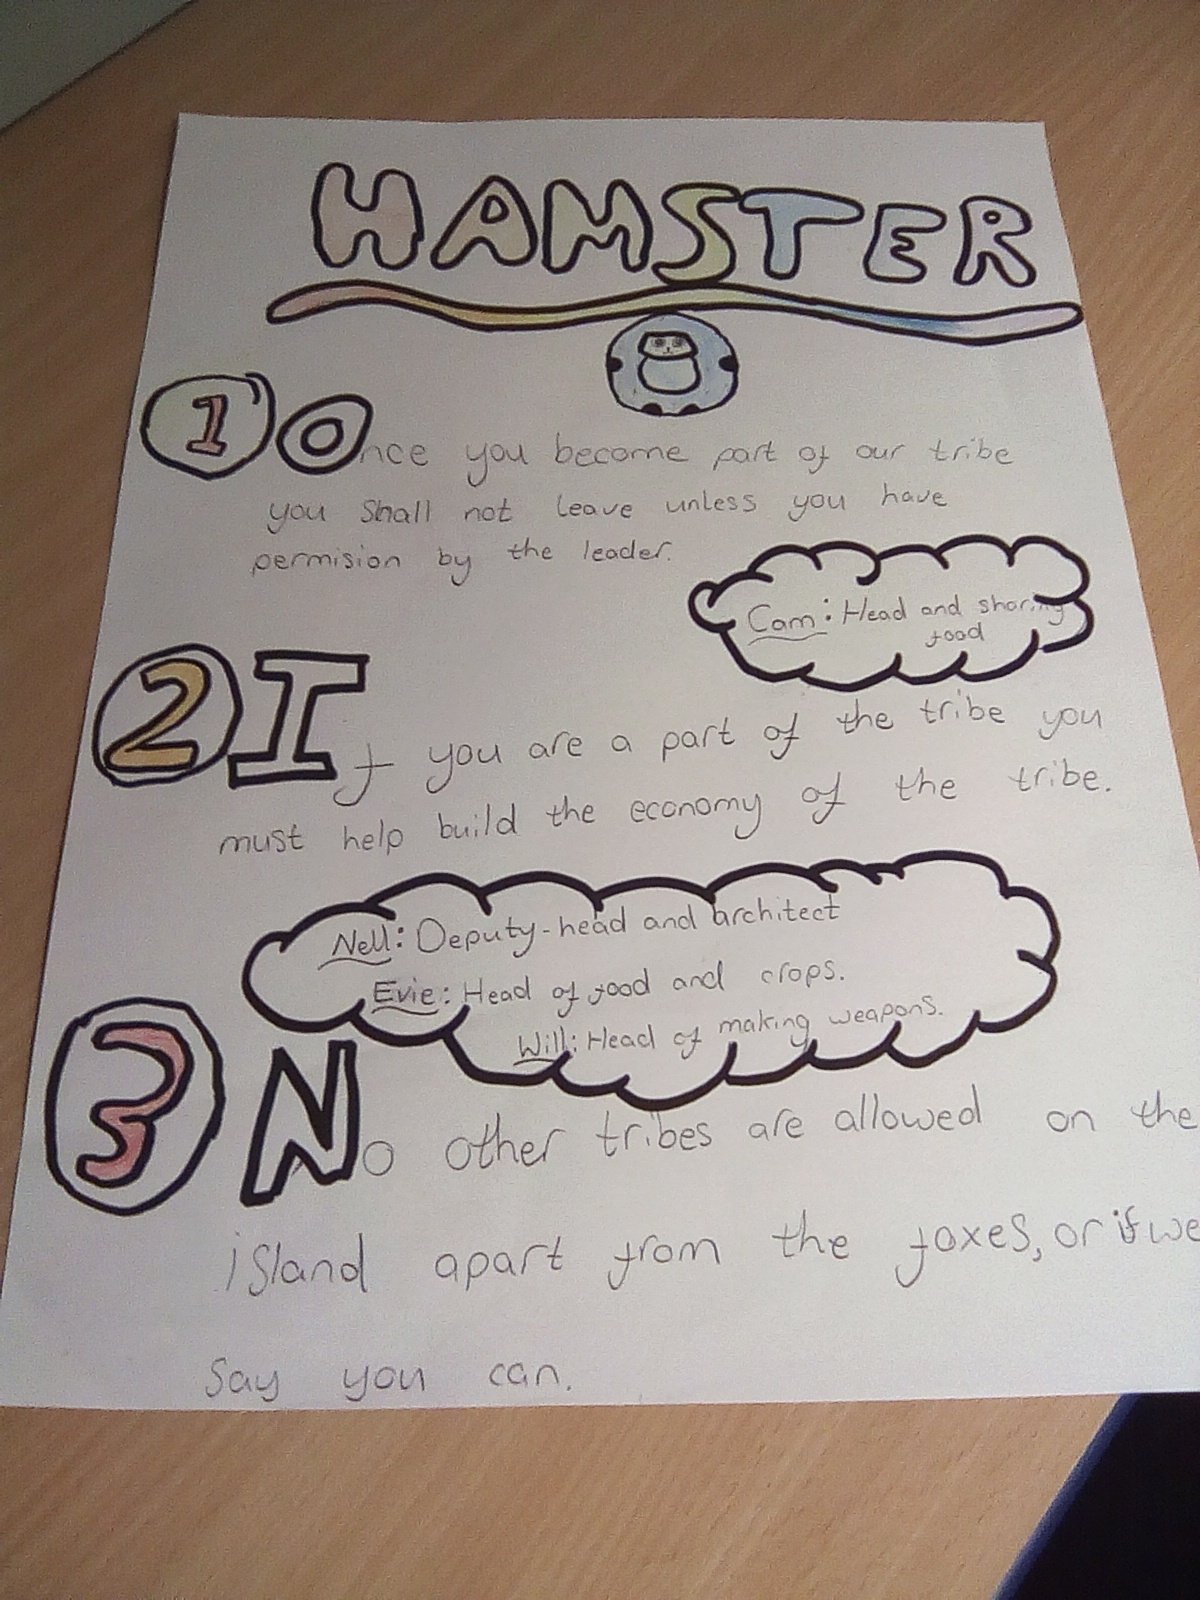 HAMSTER
1 Once you become part of our tribe
you shall not leave unless you have
permision by the leader.
Cam: Head and sharing
food
2 If you are a part of the tribe you
must help build the economy of the tribe.
Nell: Deputy-head and architect
Evie: Head of food and crops.
Will: Head of making weapons.
3 No other tribes are allowed on the
island apart from the foxes, or if we
Say you can.